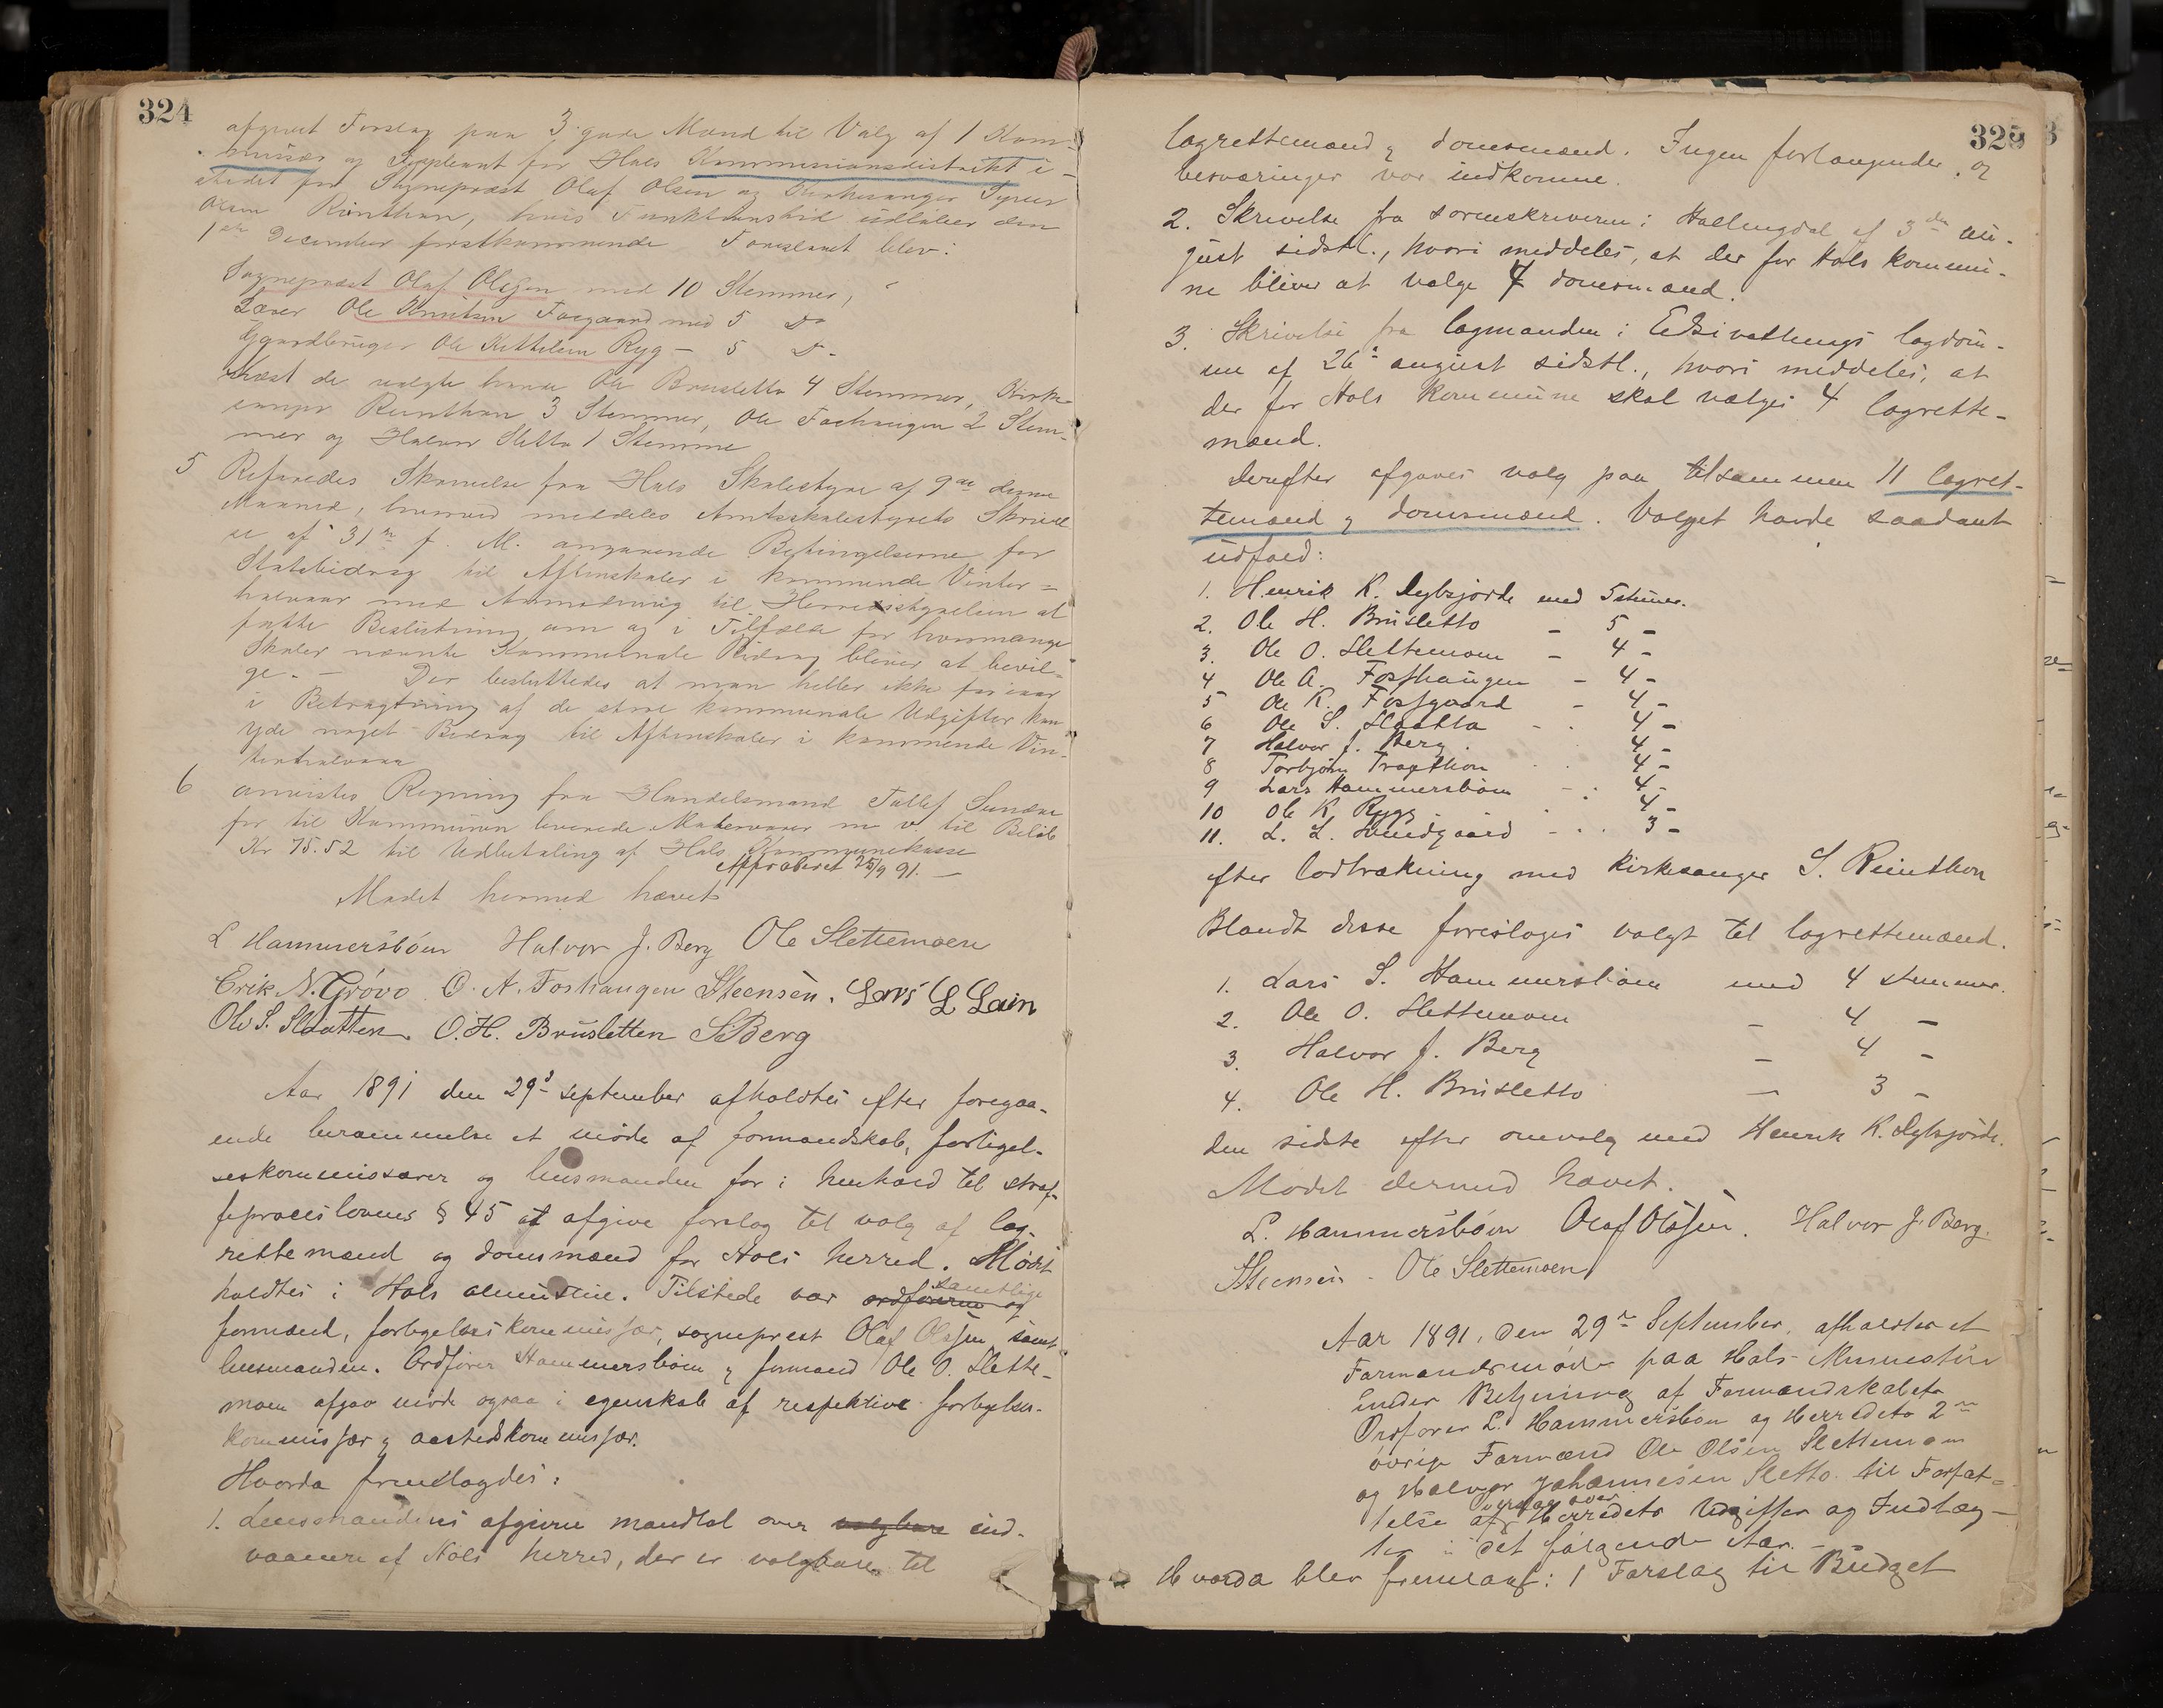 324
afgivet Forslag paa 3 gode Mænd til Valg af 1 Kom-
missær og Suppleant for Hols Kommissionsdistrikt i-
stedet for Sognepræst Olaf Olsen og Kirkesanger Syver
Olsen Reinthon, hvis Funktionstid udløber den
1ste December førstkommende Foreslaaet blev:
Sognepræst Olaf Olssen med 10 Stemmer,
Lærer Ole Knutsen Fosgaard med 5 Do
Gaardbruger Ole Kittelsen Ryg – 5 D-
Næst de valgte havde Ole Brusletto 4 Stemmer, Kirke-
sanger Reinthon 3 Stemmer, Ole Foshaugen 2 Stem-
mer og Halvor Sletto 1 Stemme
5 Refereredes Skrivelse fra Hols Skolestyre af 9de denne
Maaned, hvorved meddeles Amtsskolestyrets Skrivel-
se af 31te f. M. angaaende Betingelserne for
Statsbidrag til Aftenskoler i kommende Vinter=
halvaar med Anmodning til Herredsstyrelsen at
fatte Beslutning om og i Tilfælde for hvormange
Skoler nævnte Kommunale Bidrag bliver at bevil-
ge. – Der besluttedes at man heller ikke for iaar
i Betragtning af de store kommunale Udgifter kan
yde noget Bidrag til Aftenskoler i kommende Vin-
terhalvaar
6 anvistes Regning fra Handelsmand Tollef Sundre
for til Kommunen leverede Madvarer m. v. til Beløb
Kr 75.52 til Udbetaling af Hols Kommunekasse
Approberet 25/9 91. –
Mødet hermed hævet
L Hammersbøen Halvor J. Berg Ole Slettemoen
Erik N. Grøvo O. A. Foshaugen Steensen. Lars L Lein
Ole S. Slaatten O. H. Brusletten S Berg
Aar 1891 den 29de september afholdtes efter foregaa-
ende berammelse et møde af formandskab, forligel-
seskommissærer og lensmanden for i henhold til straf-
feproceslovens § 45 at afgive forslag til valg af lag-
rettemænd og domsmænd for Hols herred. Mødet
holdtes i Hols almustue. Tilstede var ordføreren og samtlige
formænd, forligelseskommissær, sogneprest Olaf Olssen, samt
lensmanden. Ordfører Hammersbøen & formand Ole O. Slette-
moen afgav møde ogsaa i egenskab af respektive forligelses-
kommissær & aastedskommissær.
Hvorda fremlagdes:
1. Lensmandens afgivne mandtal over valgbare ind-
vaanere af Hols herred, der er valgbare til
325
lagrettemænd & domsmænd. Ingen forlangender og
besværinger var indkomne.
2. Skrivelse fra sorenskriveren i Hallingdal af 3die au-
gust sidstl., hvori meddeles, at der for Hols kommu-
ne bliver at vælge 7 domsmænd.
3. Skrivelse fra lagmanden i Eidsivathings lagdøm-
me af 26de august sidstl., hvori meddeles, at
der for Hols kommune skal vælges 4 lagrette-
mænd.
Derefter afgaves valg paa tilsammen 11 lagret-
temænd & domsmænd. Valget havde saadant
udfald:
1. Henrik K. Dybsjorde med 5 stemr.
2. Ole H. Brusletto – 5 –
3. Ole O. Slettemoen – 4 –
4 Ole A. Fosshaugen – 4 –
5 Ole K. Fossgaard – 4 –
6 Ole S. Slaatta – 4 –
7 Halvor J. Berg 4 –
8 Torbjørn Tragethon 4 –
9 Lars Hammersbøen – 4 –
10 Ole K. Rygg 4 –
11. L. L. Sundgaard – 3 –
efter lodtrækning med kirkesanger S. Reinthon
Blandt disse foresloges valgt til lagrettemænd.
1. Lars S. Hammersbøen med 4 stemmer.
2. Ole O. Slettemoen – 4 –
3. Halvor J. Berg – 4 –
4. Ole H. Brusletto – 3 –
den sidste efter omvalg med Henrik K. Dybsjorde.
Mødet dermed hævet.
L. Hammersbøen Olaf Olssen. Halvor J. Berg.
Steensen. Ole Slettemoen
Aar 1891, den 29de September, afholdtes et
Formandsmøde paa Hols Almustue
under Betjening af Formandskabets
Ordfører L. Hammersbøen og Herredets 2de
øvrige Formænd Ole Olsen Slettemoen
og Halvor Johannesen Sletto til Forfat=
telse af overslag over Herredets Udgifter og Indtæg-
ter i det følgende Aar. –
Hvorda blev fremlagt: 1 Forslag til Budget